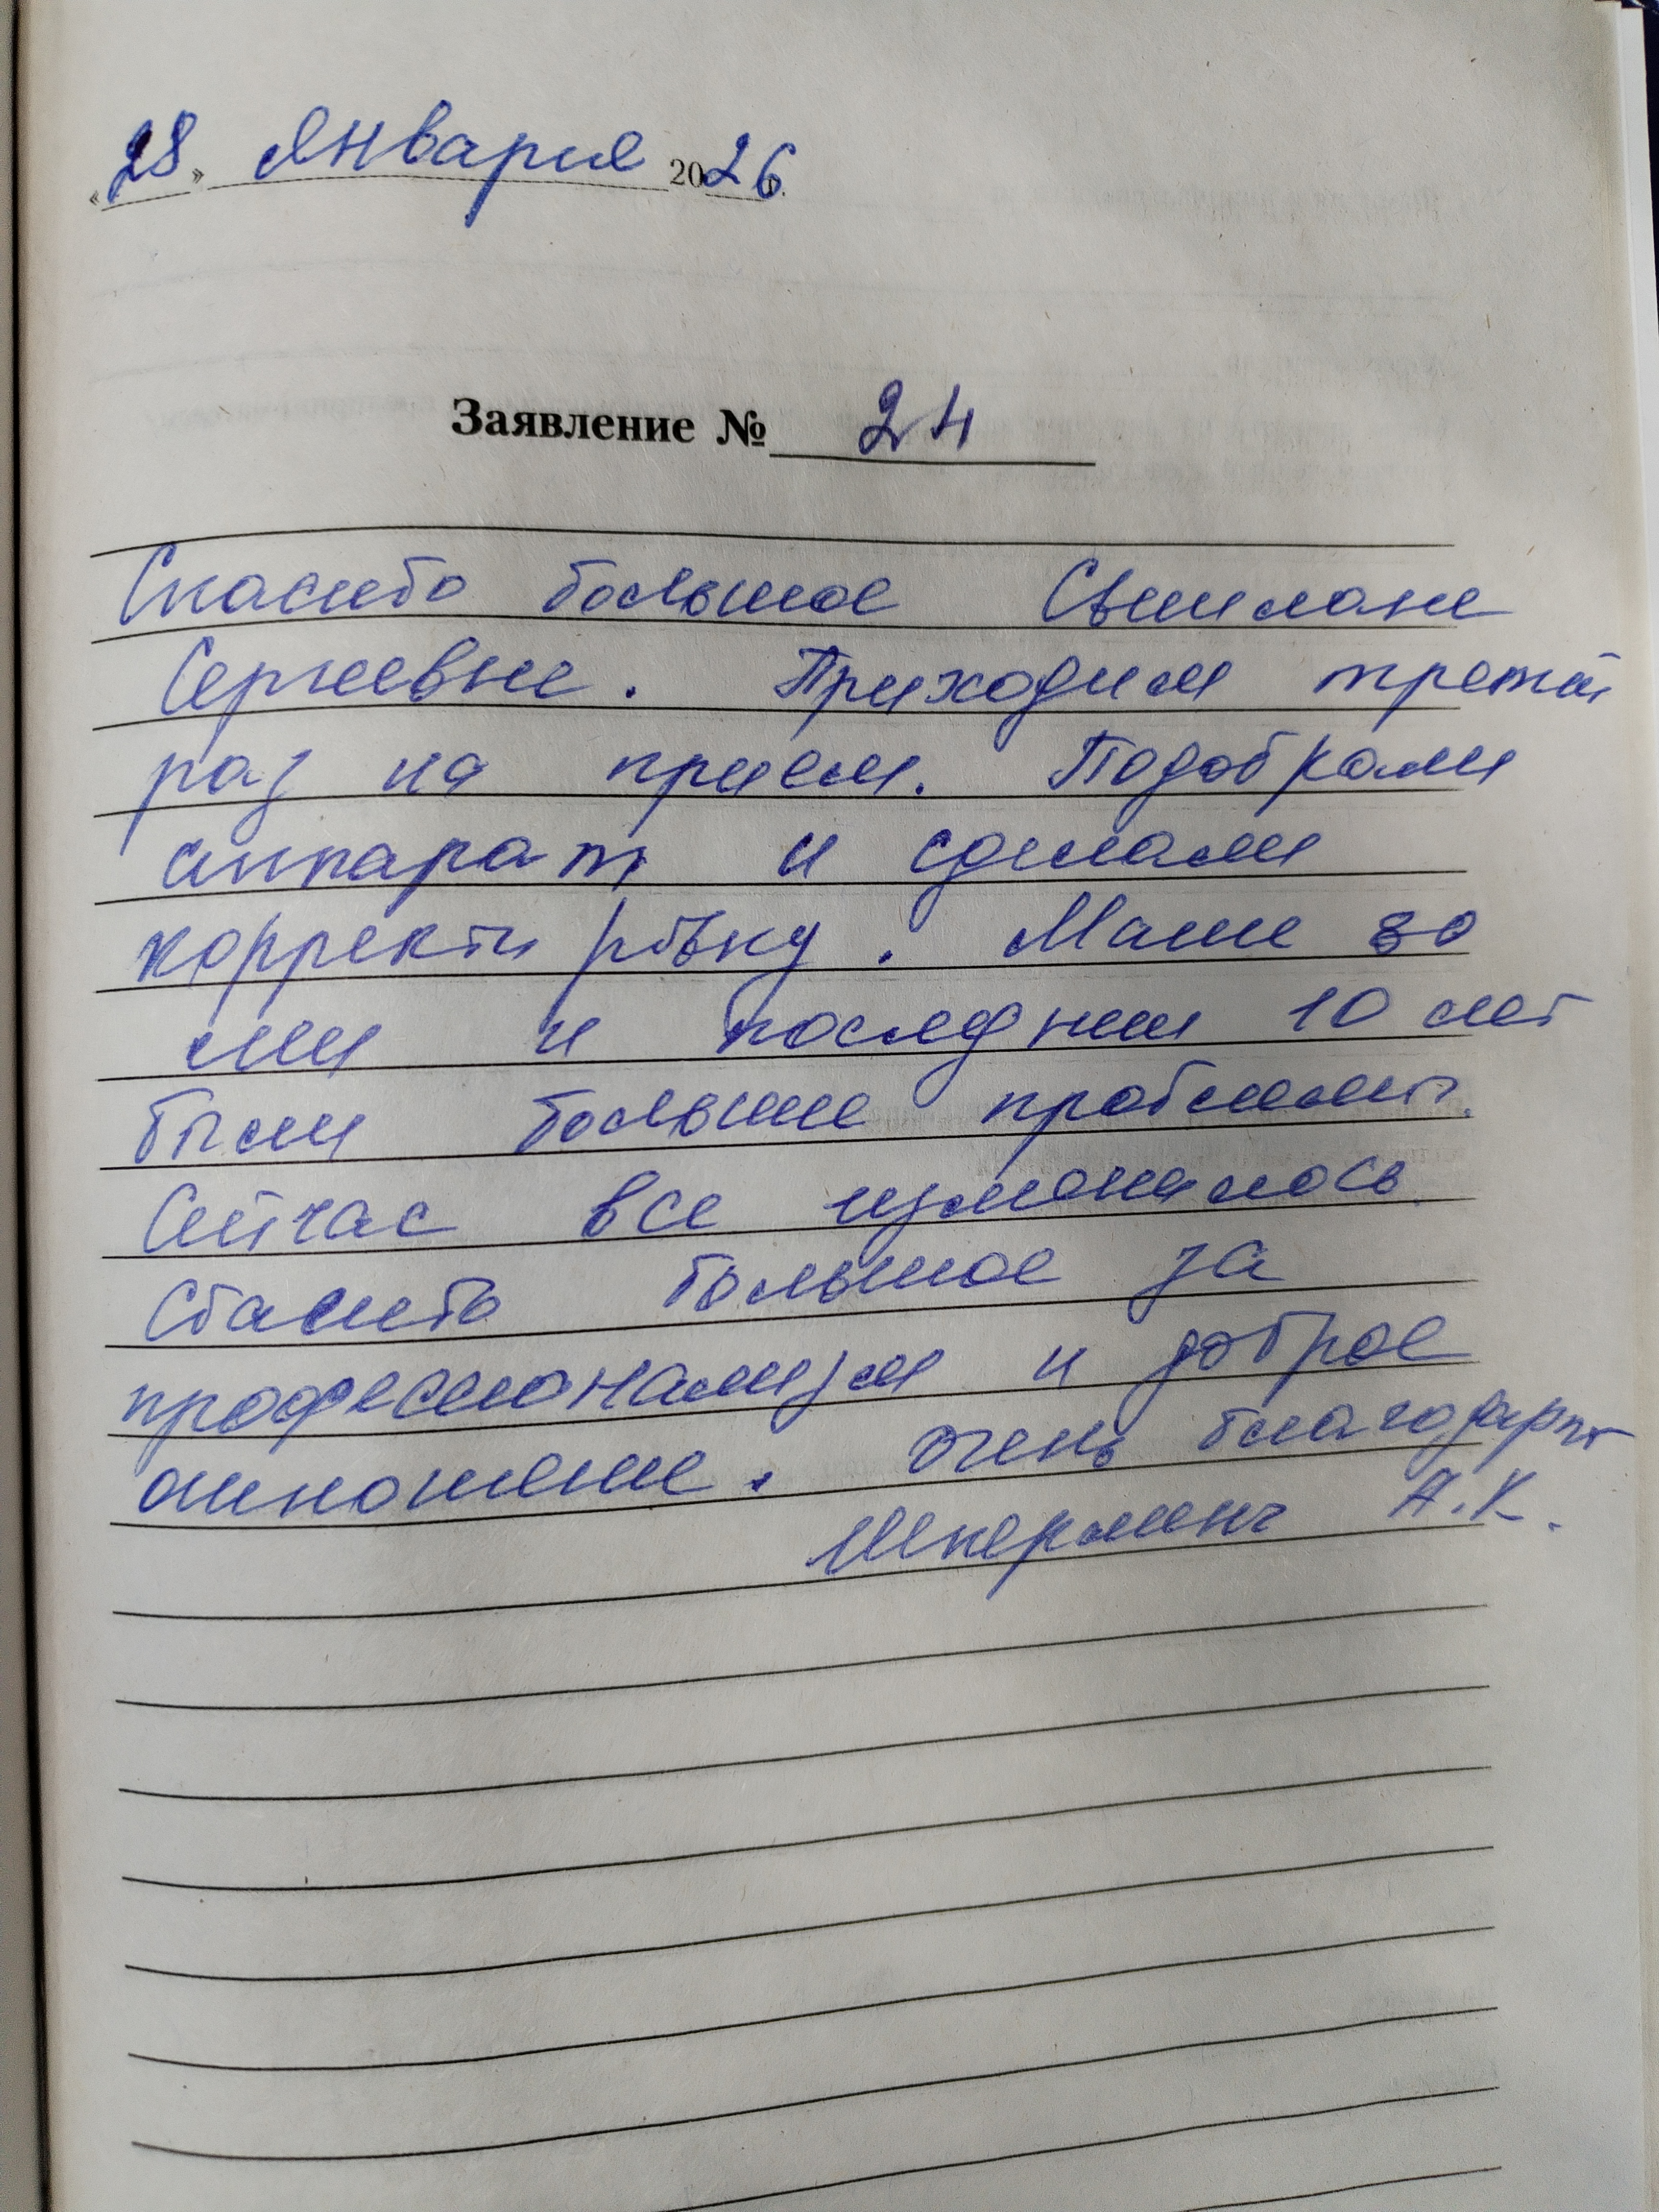 «28» Января 2026 г.
Заявление № 24
Спасибо большое Светлане
Сергеевне. Приходим третий
раз на прием. Подобрали
аппарат и сделали
корректировку. Маме 80
лет и последнии 10 лет
были большие проблемы.
Сейчас все изменилось.
Спасибо большое за
профессионализм и доброе
отношение. Очень благодарны
А.К.